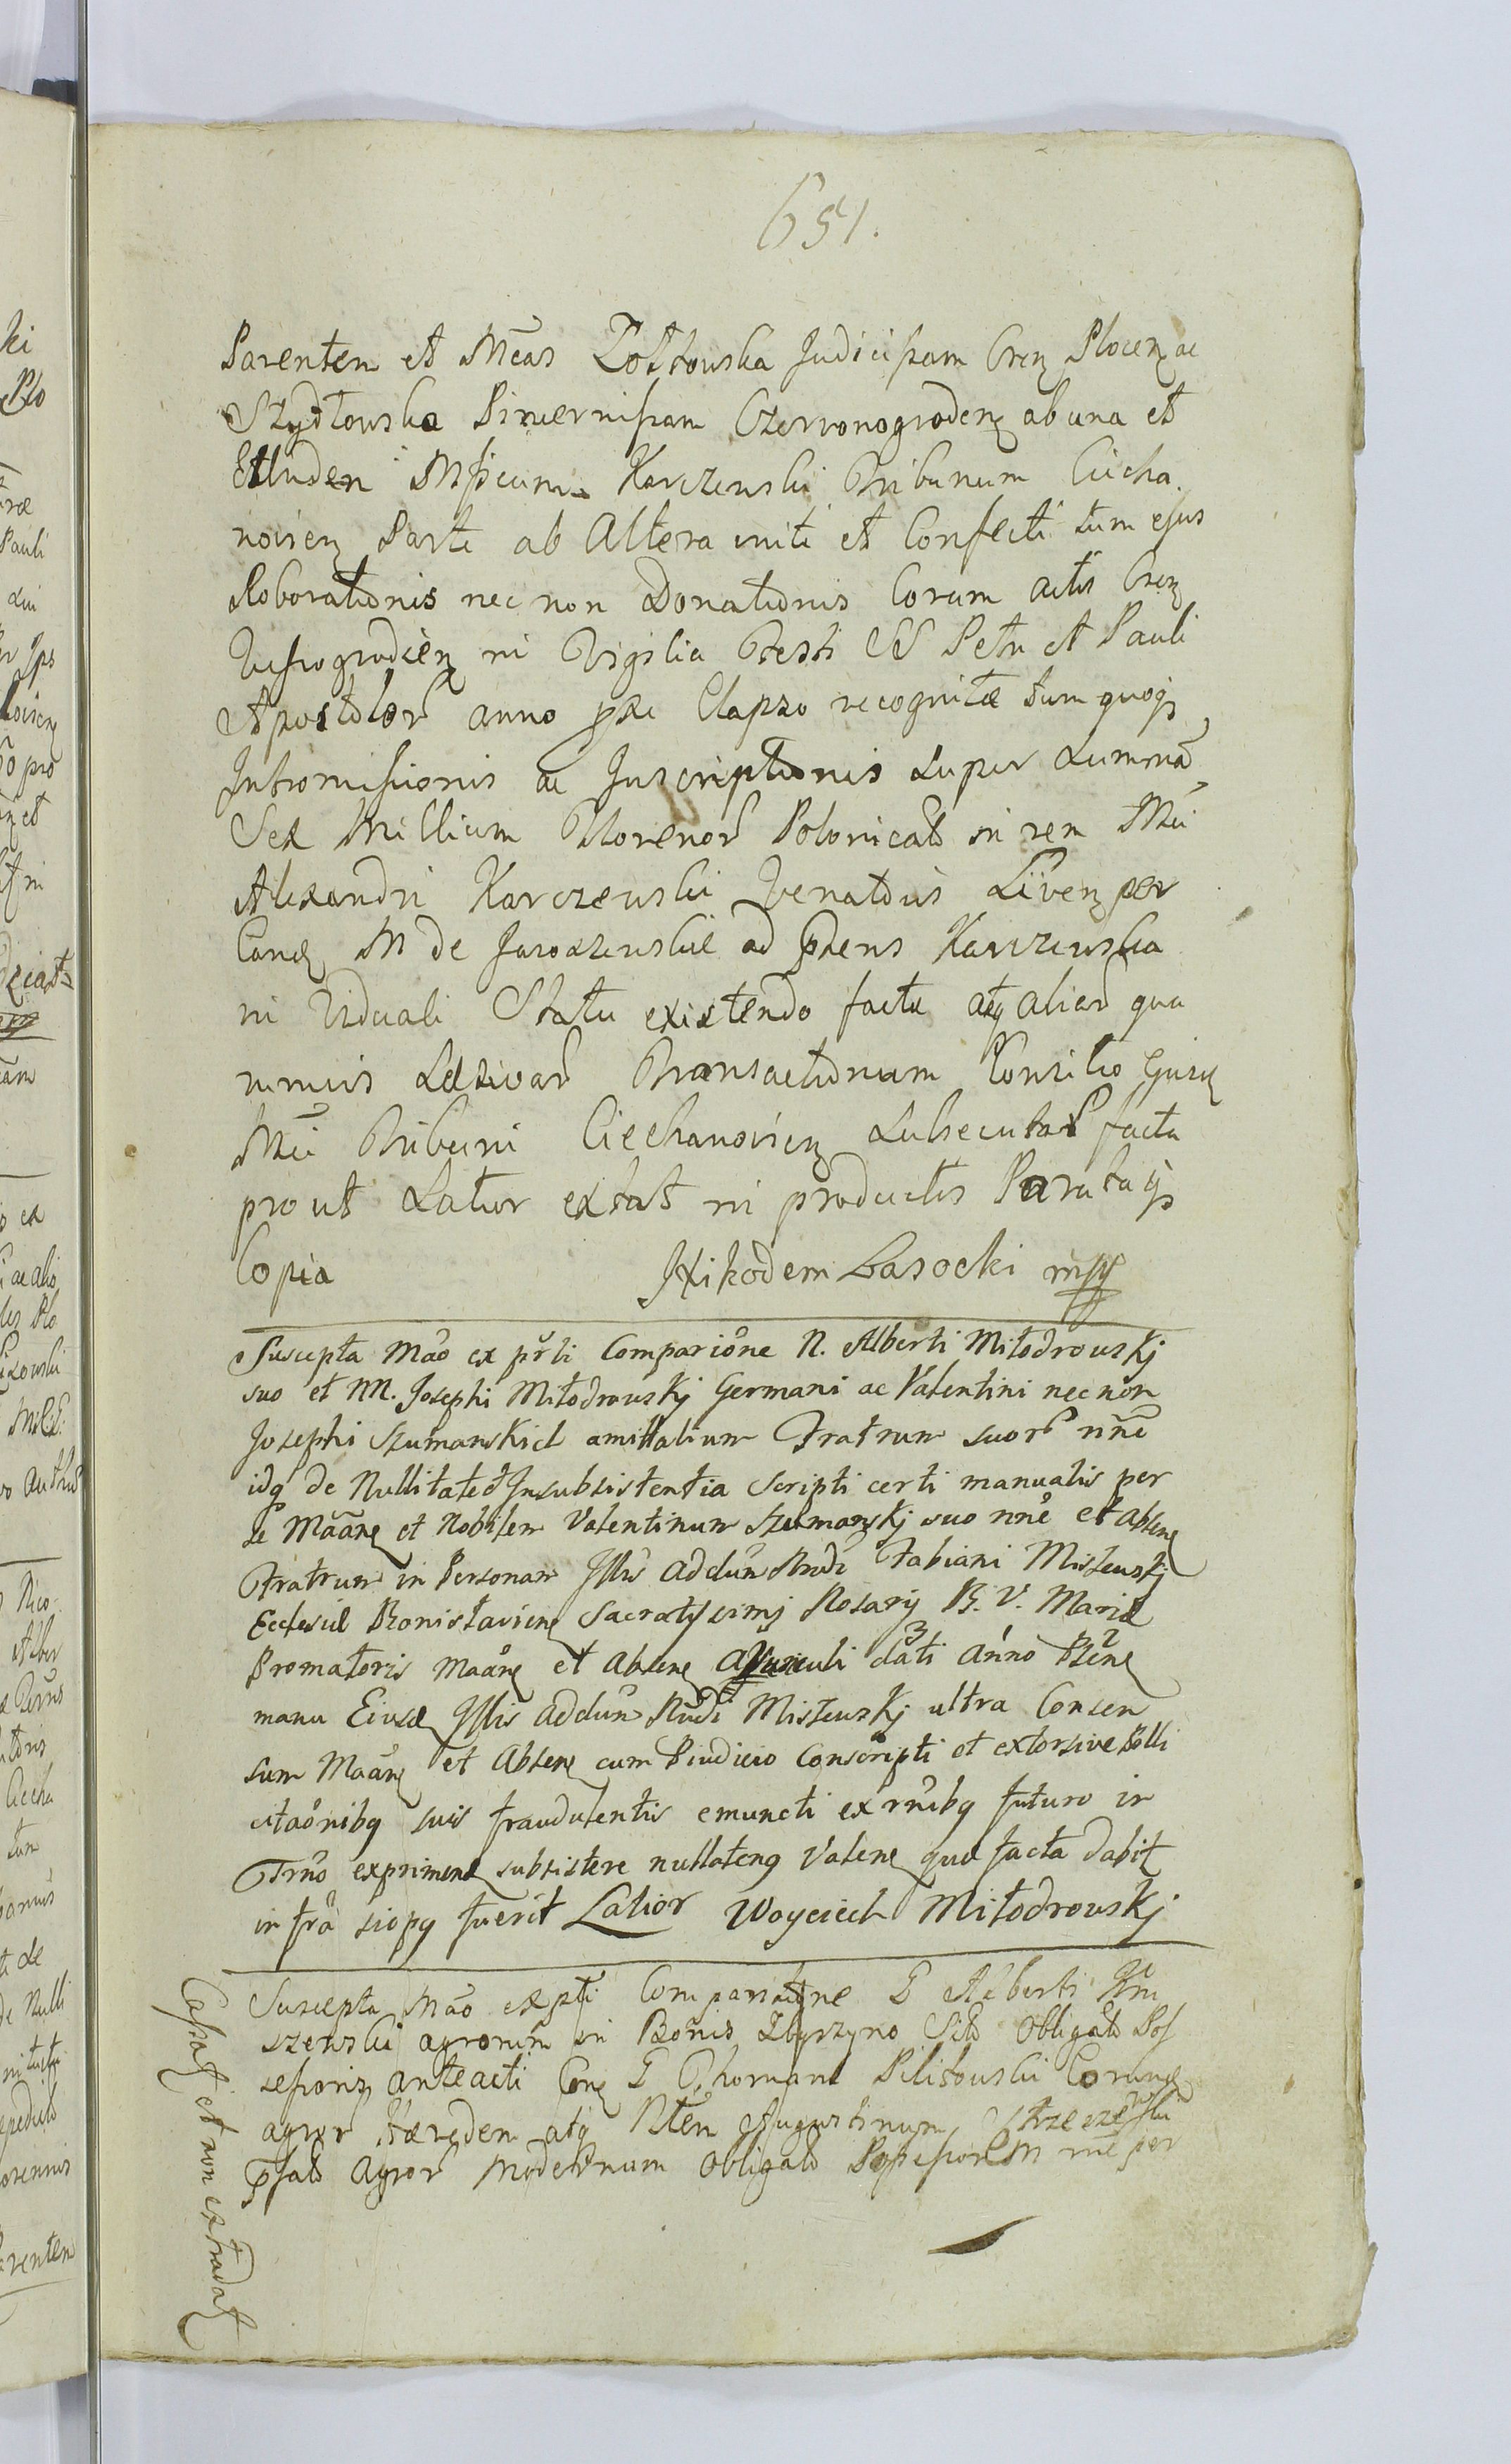 651.
Parentem et Mcas Zołtowska Judicissam Cren Plocen ac
Szydłowska Pincernissam Czerwonogroden ab una et
Eundem Mficum Karczewski Tribunum Ciecha
novien Parte ab Altera initi et Confecti tum ejus
Roborationis nec non Donationis Coram actis Cren
Vissogrodien in Vigilia Festi SS Petri et Pauli
Apostolor anno pxe Elapso recognitæ tum quoq
Intromissionis ac Inscriptionis super summa
Sex Millium Florenor Polonical in rem Mci
Alexandri Karczewski Venatoris Liven per
Eand M de Jaroszewskie ad præns Karczewska
in Viduali Statu existendo facta atq aliar qua
rumvis Læsivar Transactionum Consilio Ejusd
Mci Tribuni Ciechanovien Subsecutar facta
prout Latior extat in productis Parata q
Copia Nikodem Lasocki mpp
Suscepta Mao ex prti Comparione N. Alberti Miłodrowskj
suo et NN. Josephi Miłodrowskj Germani ac Valentini nec non
Josephi Szumanskich amitalium Fratrum suor nne
idq de Nullitate et Insubsistentia scripti certi manualis per
se Maane et Nobilem Valentinum Szumanskj suo nne et absen
Fratrum in Personam Illis addun Rndi Fabiani Miszewskj
Ecclesiæ Bonislavien Sacratissimj Rosarij B. V. Mariæ
Promatoris Maane et absen Avunculi 3 dati 1 anno 2 Pzne
manu Eiusd Illis addun Rndi Miszewskj ultra Consen
sum Maane et Absen cum Piudicio Conscripti et extorsive Polli
citaonibq suis fraudulentis emuncti ex rnibq futuro in
Trno exprimend subsistere nullateng valen qua facta dabit
infra siopg fuerit Latior Woyciech Miłodrowskj
Suscepta Mao ex pti Comparitione G Alberti
szewski agrorum in Bonis Zbyszyno Sito Obligato Pos
sessoris anteacti Con G Thomam Pilitowski Eorund
agror Hæredem atq Ntem Augustinum Strzeszewski
pfato Agror Modernum Obligato Possessorem me per
Cassat et non extradat